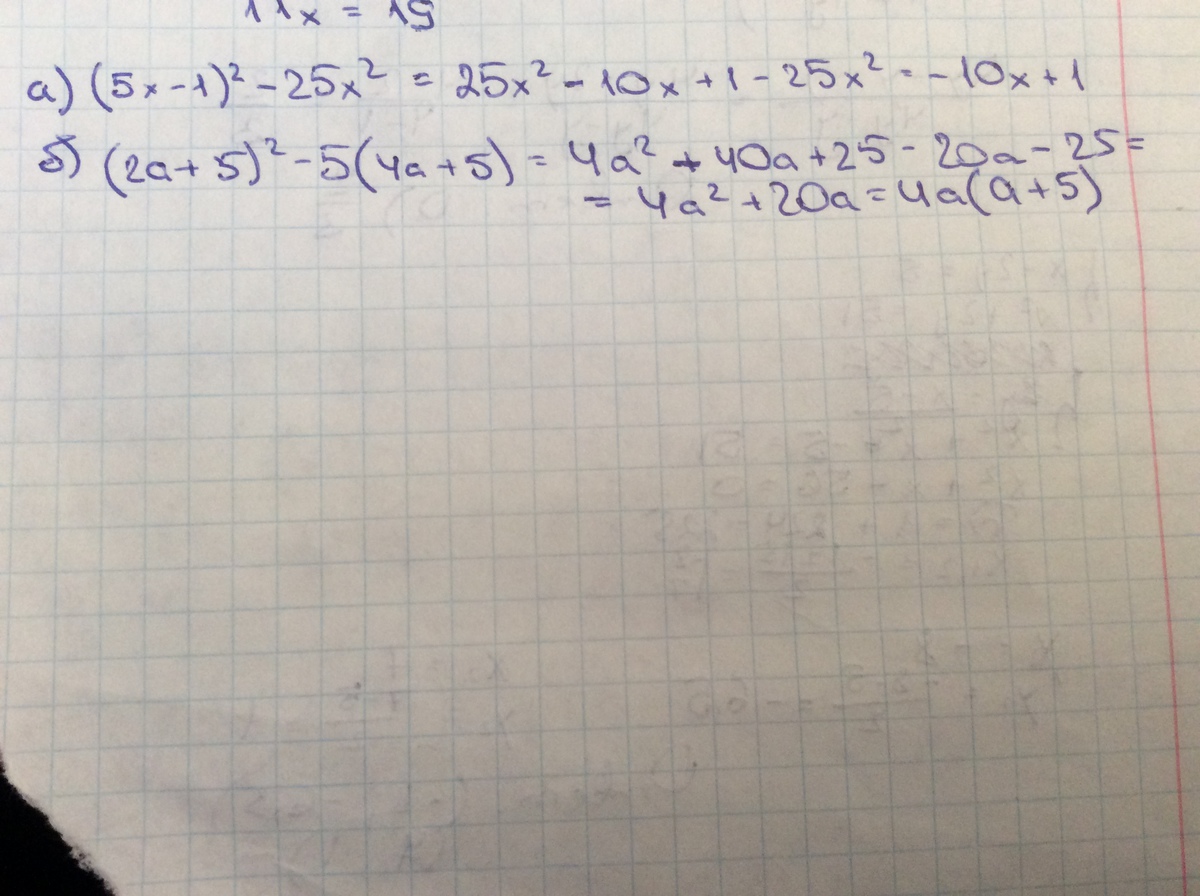 11x = 19
а) (5x-1)² - 25x² = 25x² - 10x + 1 - 25x² = -10x + 1
б) (2a+5)² - 5(4a+5) = 4a² + 40a + 25 - 20a - 25 =
= 4a² + 20a = 4a(a+5)